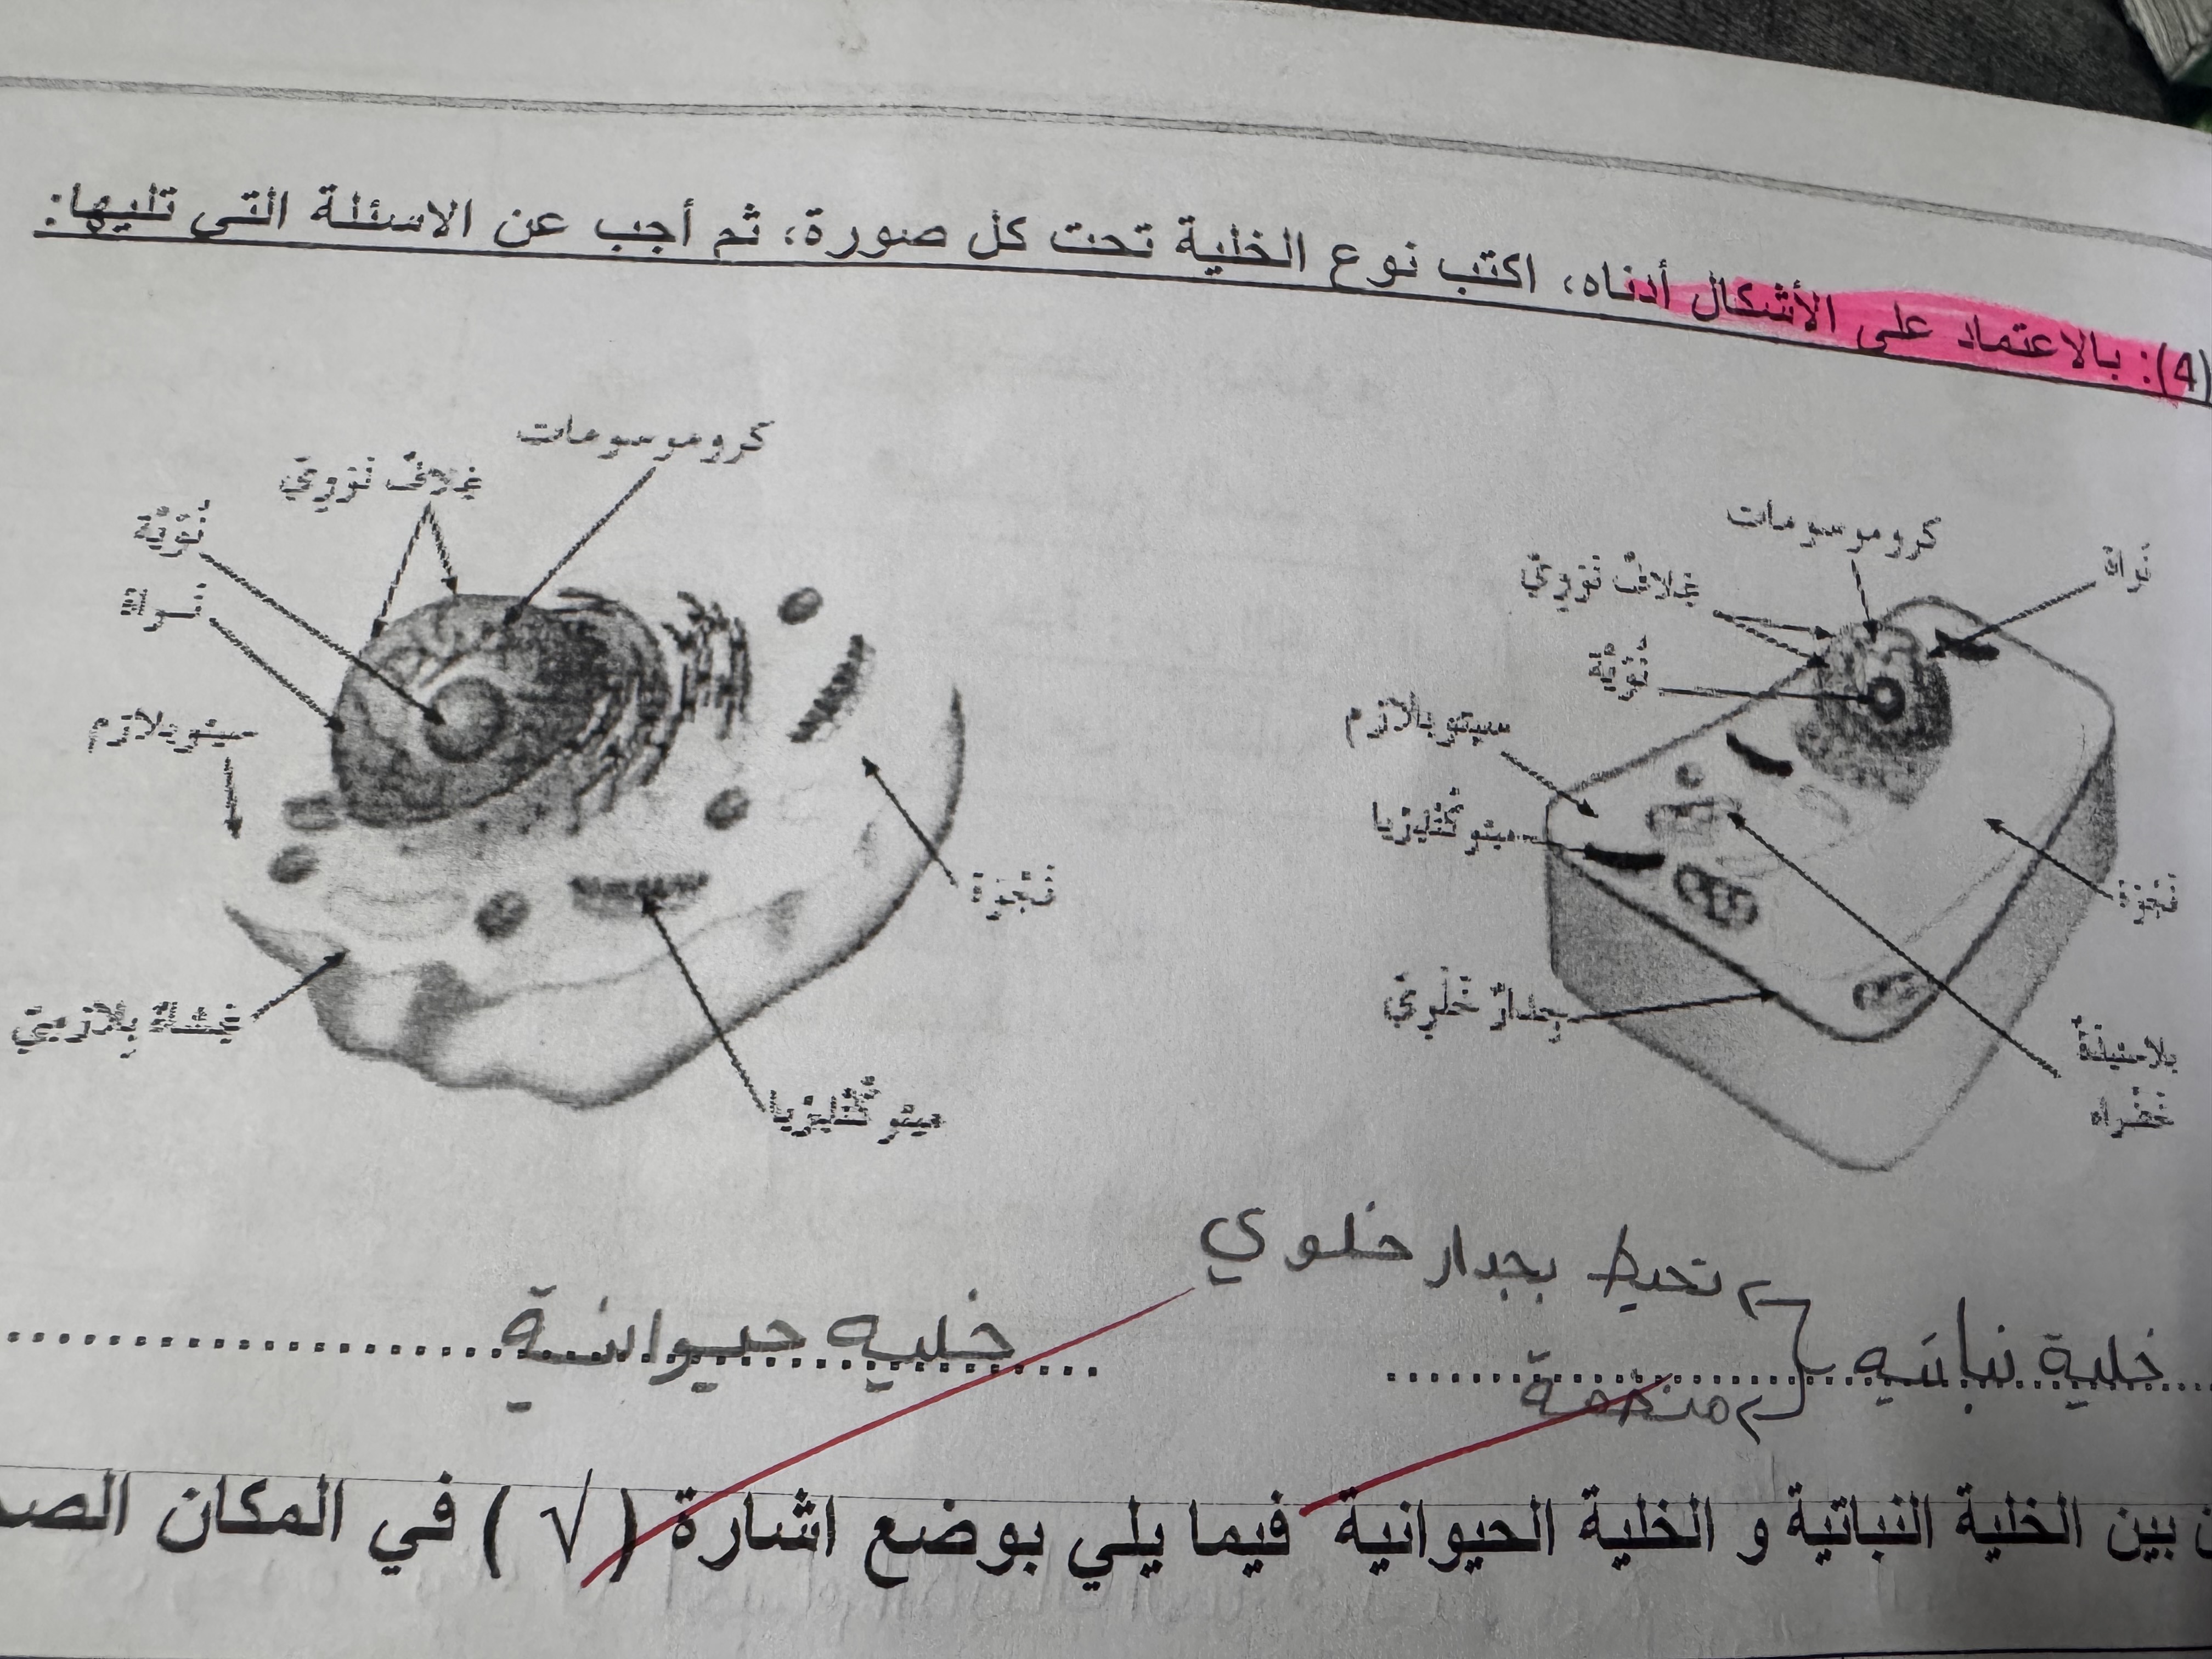 (4): بالاعتماد على الأشكال أدناه، اكتب نوع الخلية تحت كل صورة، ثم أجب عن الاسئلة التي تليها:
كروموسومات
نواة
غلاف نووي
نوية
سيتوبلازم
ميتوكندريا
فجوة
جدار خلوي
بلاستيدة
خضراء
كروموسومات
غلاف نووي
نوية
نواة
سيتوبلازم
فجوة
غشاء بلازمي
ميتوكندريا
تحيط بجدار خلوي
خلية نباتيه
منتظمة
خليه حيوانية
بين الخلية النباتية و الخلية الحيوانية فيما يلي بوضع اشارة ( √ ) في المكان